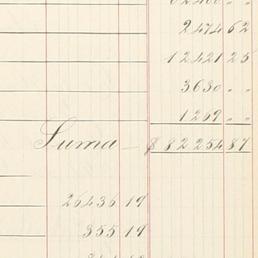 2474 62
12421 25
3630 " "
1269 " "
Suma — $ 82254 87
26436 19
355 19